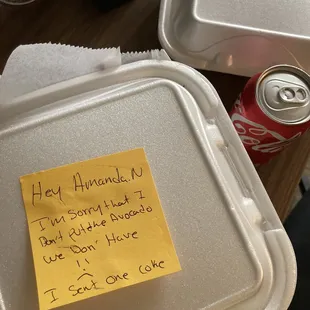 Hey Amanda.N
I'm Sorry that I
Don't put the Avocado
we Don' Have
!!
I sent one coke
Coca-Cola